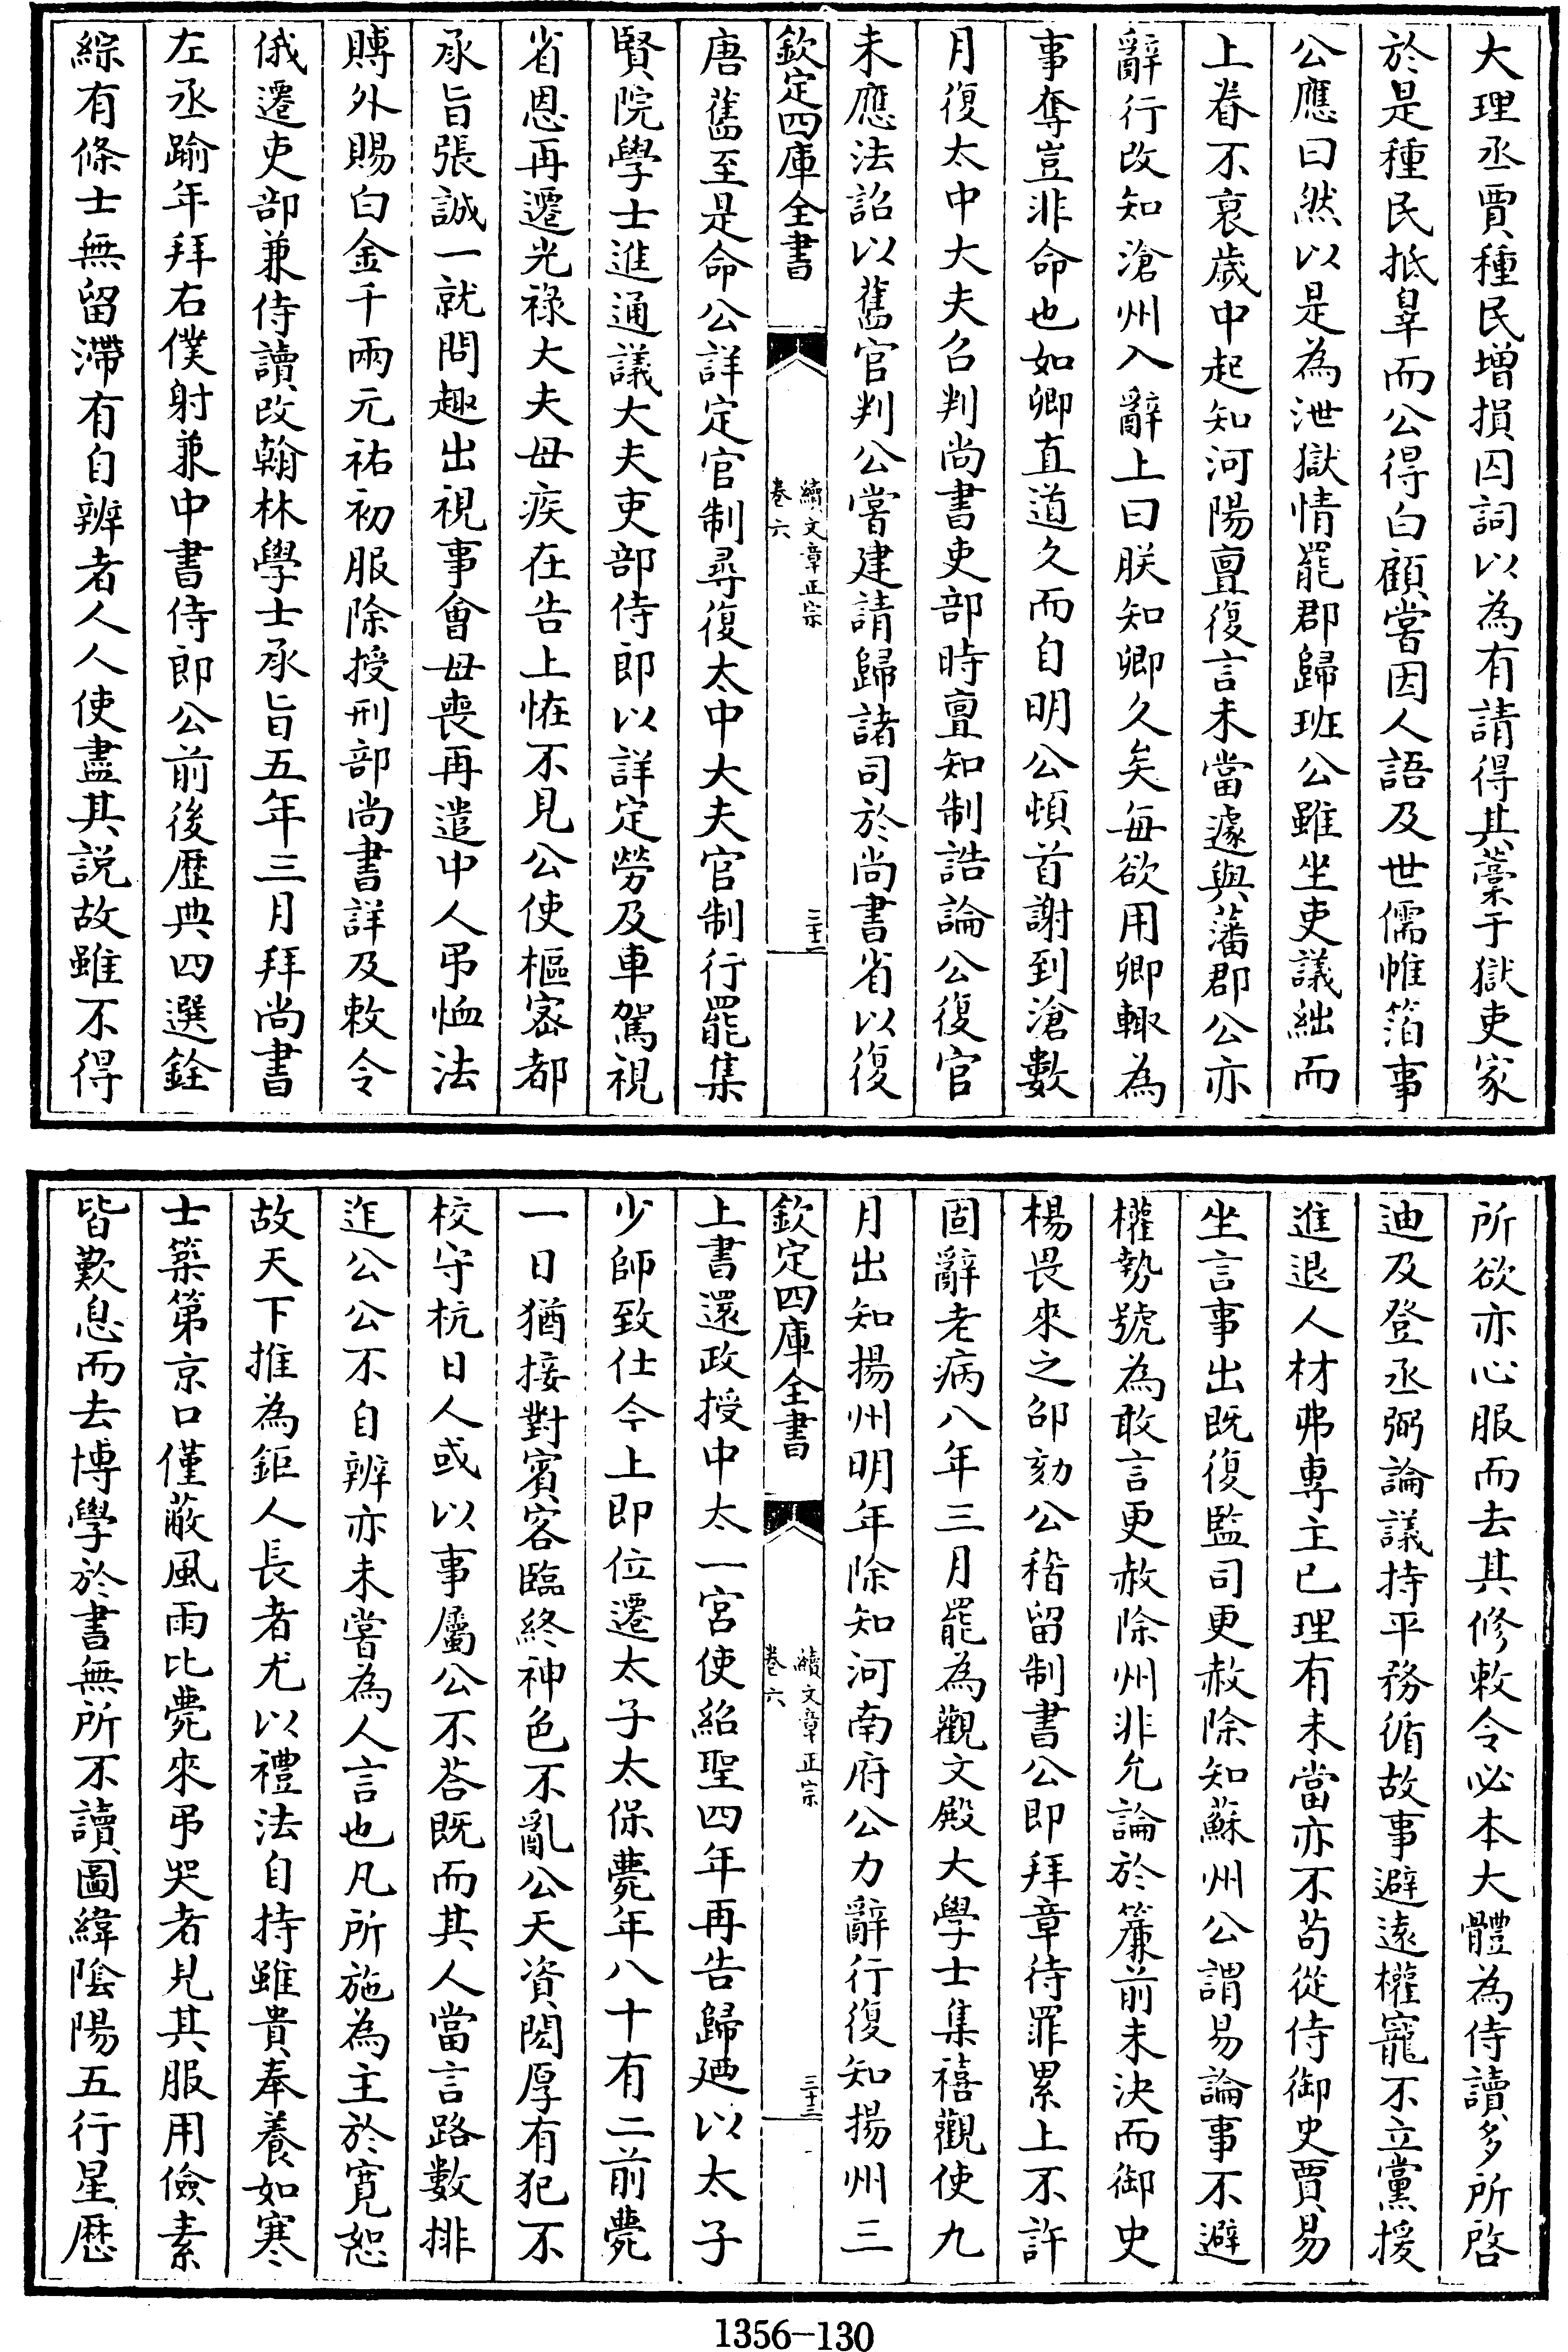 大理丞賈種民增損囚詞以為有請得其藁于獄吏家
於是種民抵辠而公得白顧嘗因人語及世儒帷箔事
公應曰然以是為泄獄情罷郡歸班公雖坐吏議絀而
上眷不衰歲中起知河陽亶復言未當遽與藩郡公亦
辭行改知滄州入辭上曰朕知卿久矣每欲用卿輙為
事奪豈非命也如卿直道久而自明公頓首謝到滄數
月復太中大夫召判尚書吏部時亶知制誥論公復官
未應法詔以舊官判公嘗建請歸諸司於尚書省以復
欽定四庫全書
續文章正宗
卷六
三十二
唐舊至是命公詳定官制尋復太中大夫官制行罷集
賢院學士進通議大夫吏部侍郎以詳定勞及車駕視
省恩再遷光祿大夫母疾在告上恠不見公使樞宻都
承旨張誠一就問趣出視事會母喪再遣中人弔恤法
賻外賜白金千兩元祐初服除授刑部尚書詳及敕令
俄遷吏部兼侍讀改翰林學士承旨五年三月拜尚書
左丞踰年拜右僕射兼中書侍郎公前後歷典四選銓
綜有條士無留滯有自辨者人人使盡其説故雖不得
所欲亦心服而去其修敕令必本大體為侍讀多所啓
迪及登丞弼論議持平務循故事避遠權寵不立黨援
進退人材弗專主已理有未當亦不苟從侍御史賈易
坐言事出既復監司更赦除知蘇州公謂易論事不避
權勢號為敢言更赦除州非允論於簾前未決而御史
楊畏來之邵劾公稽留制書公即拜章待罪累上不許
固辭老病八年三月罷為觀文殿大學士集禧觀使九
月出知揚州明年除知河南府公力辭行復知揚州三
欽定四庫全書
續文章正宗
卷六
三十三
上書還政授中太一宮使紹聖四年再告歸廼以太子
少師致仕今上即位遷太子太保薨年八十有二前薨
一日猶接對賓客臨終神色不亂公天資閎厚有犯不
校守杭日人或以事屬公不荅既而其人當言路數排
迮公公不自辨亦未嘗為人言也凡所施為主於寛恕
故天下推為鉅人長者尤以禮法自持雖貴奉養如寒
士築第京口僅蔽風雨比薨來弔哭者見其服用儉素
皆歎息而去博學於書無所不讀圖緯陰陽五行星歴
1356-130